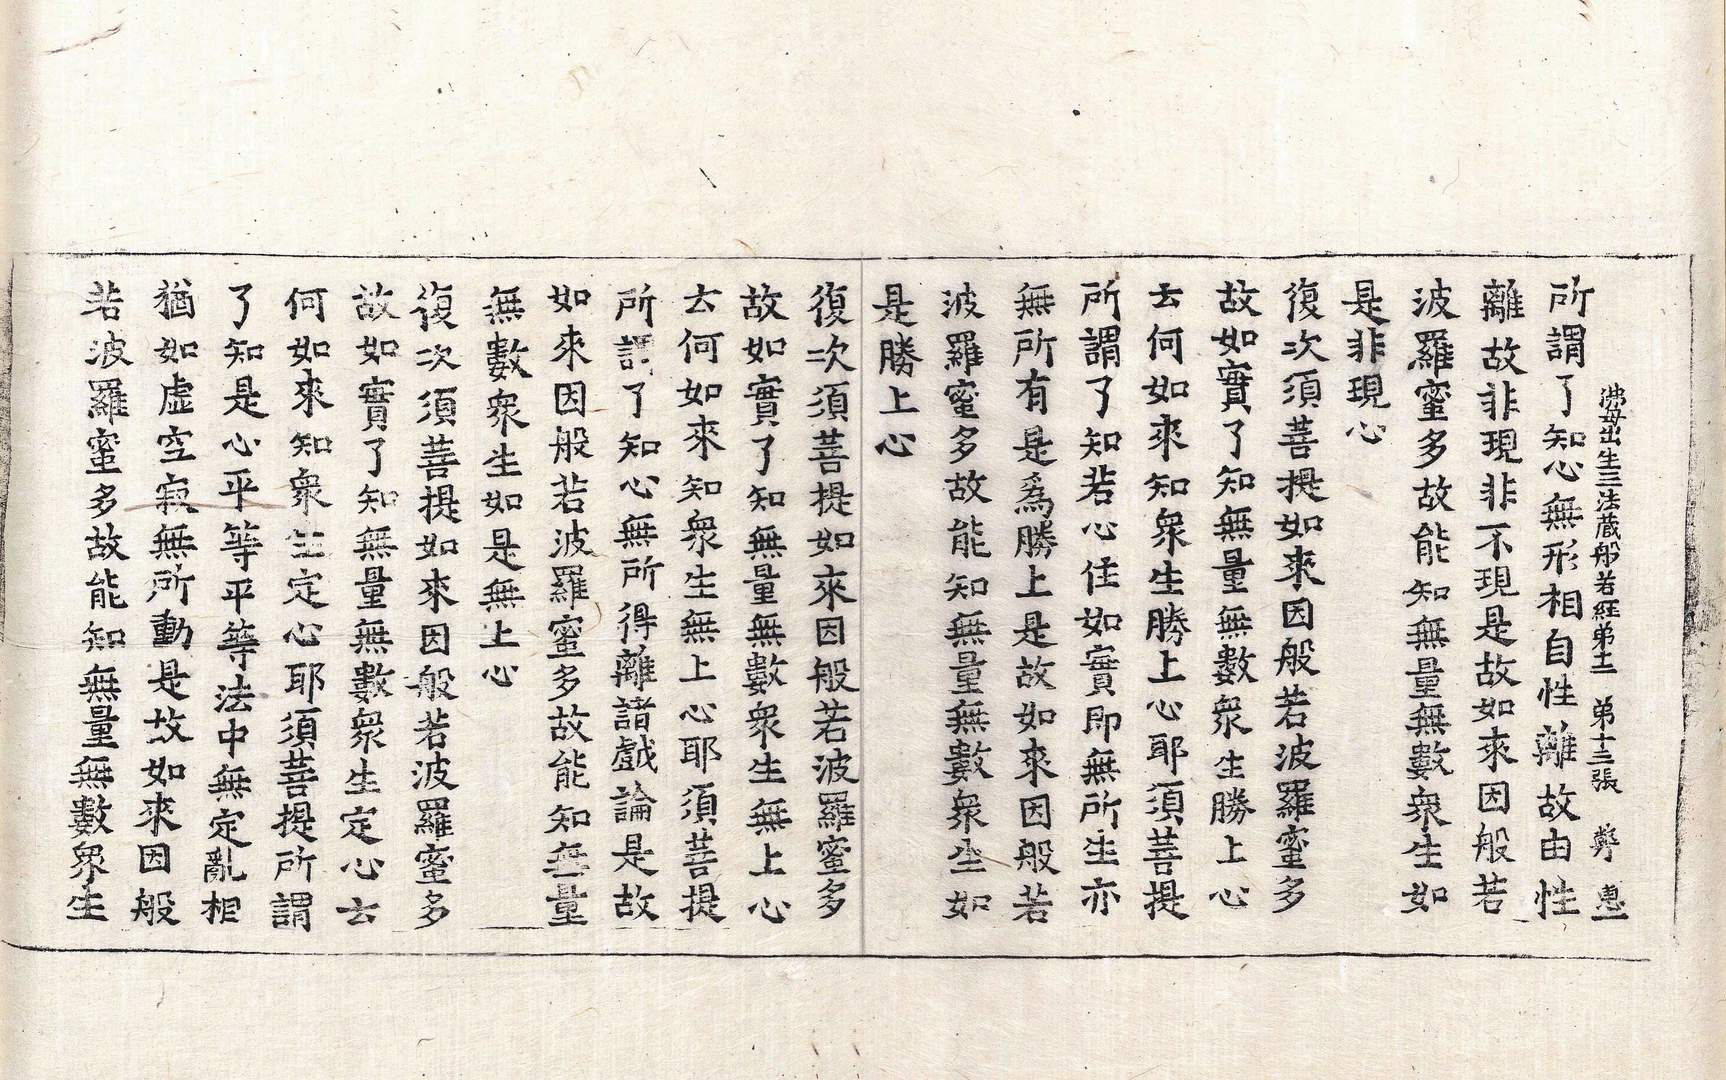 佛母出生三法蔵般若經苐十二 苐十三張 惠一
所謂了知心無形相自性離故由性
離故非現非不現是故如來因般若
波羅蜜多故能知無量無數衆生如
是非現心
復次須菩提如來因般若波羅蜜多
故如實了知無量無數衆生勝上心
云何如來知衆生勝上心耶須菩提
所謂了知若心住如實即無所生亦
無所有是爲勝上是故如來因般若
波羅蜜多故能知無量無數衆生如
是勝上心
復次須菩提如來因般若波羅蜜多
故如實了知無量無數衆生無上心
云何如來知衆生無上心耶須菩提
所謂了知心無所得離諸戲論是故
如來因般若波羅蜜多故能知無量
無數衆生如是無上心
復次須菩提如來因般若波羅蜜多
故如實了知無量無數衆生定心云
何如來知衆生定心耶須菩提所謂
了知是心平等平等法中無定亂相
猶如虛空寂無所動是故如來因般
若波羅蜜多故能知無量無數衆生